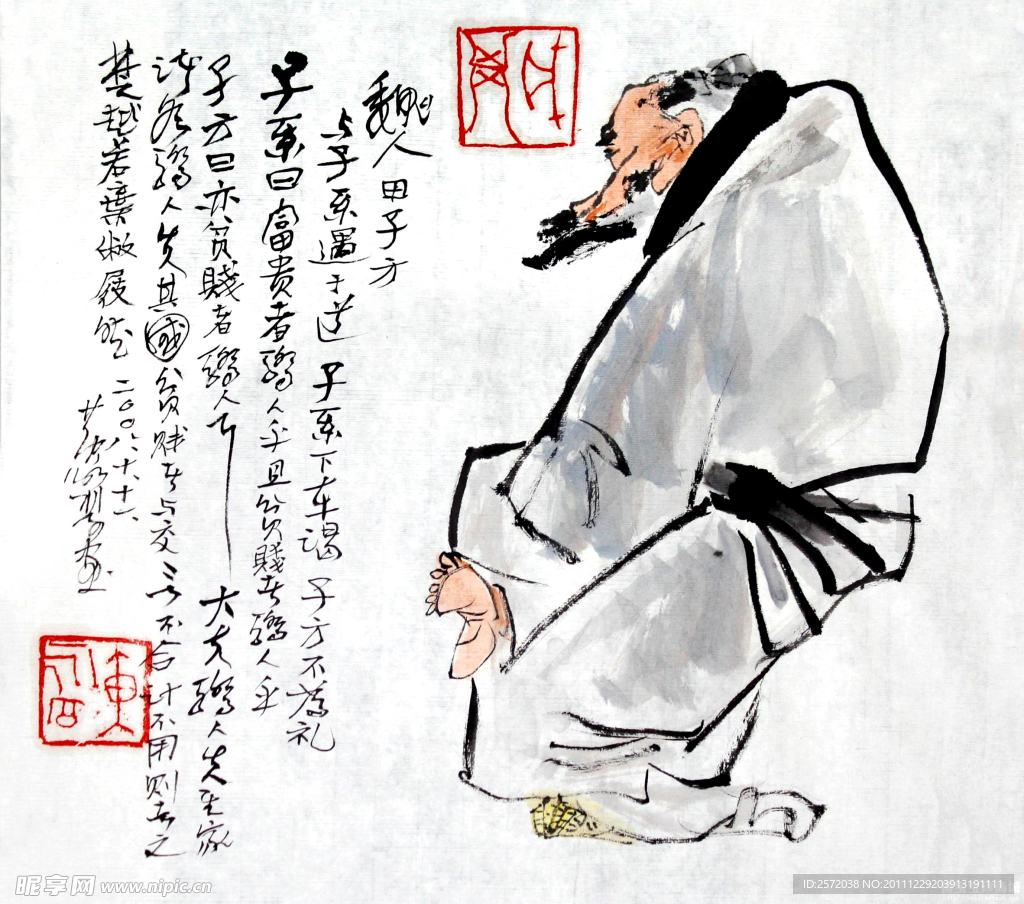 魏人田子方
与子系遇于道 子系下车谒 子方不为礼
子系曰富贵者骄人乎且贫賤者骄人乎
子方曰亦贫賤者骄人耳 大夫骄人失其家
诸侯骄人失其國贫贱者与交言不合计不用则去之
楚越若棄敝屐然 二〇〇八.十.十一.
昵享网 www.nipic.cn
ID:2572038 NO:20111229203913191111